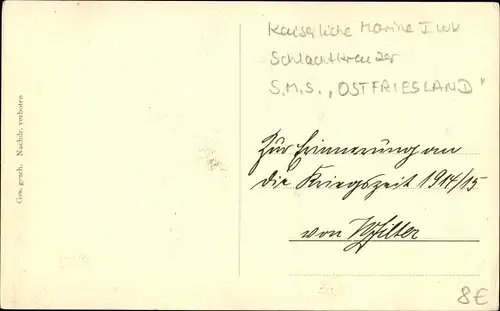 Kaiserliche Marine I WK
Schlachtkreuzer
S.M.S. „OSTFRIESLAND"
Ges. gesch. Nachdr. verboten
Zur Erinnerung an
die Kriegszeit 1914/15
von
8€